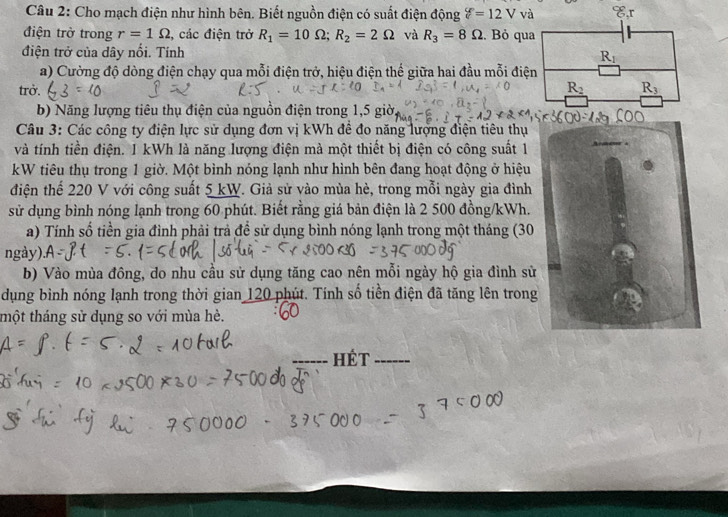 Câu 2: Cho mạch điện như hình bên. Biết nguồn điện có suất điện động ℰ = 12 V và
điện trở trong r = 1 Ω, các điện trở R₁ = 10 Ω; R₂ = 2 Ω và R₃ = 8 Ω. Bỏ qua
điện trở của dây nối. Tính
ℰ,r
R₁
R₂ R₃
a) Cường độ dòng điện chạy qua mỗi điện trở, hiệu điện thế giữa hai đầu mỗi điện
trở.
b) Năng lượng tiêu thụ điện của nguồn điện trong 1,5 giờ
Câu 3: Các công ty điện lực sử dụng đơn vị kWh để đo năng lượng điện tiêu thụ
và tính tiền điện. 1 kWh là năng lượng điện mà một thiết bị điện có công suất 1
kW tiêu thụ trong 1 giờ. Một bình nóng lạnh như hình bên đang hoạt động ở hiệu
điện thế 220 V với công suất 5 kW. Giả sử vào mùa hè, trong mỗi ngày gia đình
sử dụng bình nóng lạnh trong 60 phút. Biết rằng giá bán điện là 2 500 đồng/kWh.
a) Tính số tiền gia đình phải trả để sử dụng bình nóng lạnh trong một tháng (30
ngày). A = P.t = 5.1 = 5 = 5 x 2500 x 30 = 375 000
b) Vào mùa đông, do nhu cầu sử dụng tăng cao nên mỗi ngày hộ gia đình sử
dụng bình nóng lạnh trong thời gian 120 phút. Tính số tiền điện đã tăng lên trong
một tháng sử dụng so với mùa hè. :60
A = P.t = 5.2 = 10
------ HẾT ------
= 10 x 2500 x 30 = 7500
750000 - 375 000 = 375000